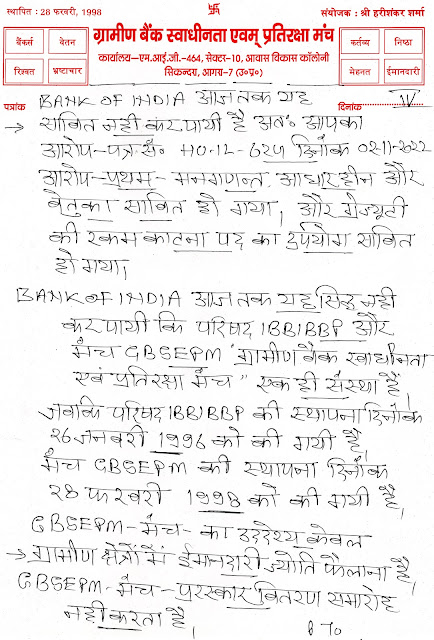 स्थापित : 28 फरवरी, 1998
संयोजक : श्री हरीशंकर शर्मा
बैंकर्स
वेतन
रिश्वत
भ्रष्टाचार
ग्रामीण बैंक स्वाधीनता एवम् प्रतिरक्षा मंच
कार्यालय–एम.आई.जी.–464, सेक्टर–10, आवास विकास कॉलौनी
सिकन्दरा, आगरा–7 (उ०प्र०)
कर्त्तव्य
निष्ठा
मेहनत
ईमानदारी
पत्रांक
दिनांक
IV
BANK OF INDIA आज तक यह
→ साबित नहीं कर पायी है अतः आपका
आरोप–पत्र सं० HO-IL-
आरोप–प्रथम–मनगणन्त, आधारहीन और
बेतुका साबित हो गया, और ग्रेज्युटी
की रकम काटना पद का दुरूपयोग साबित
हो गया,
BANK OF INDIA आज तक यह सिद्ध नहीं
कर पायी कि परिषद IBBIBBP और
मंच GBSEPM "ग्रामीण बैंक स्वाधीनता
एवं प्रतिरक्षा मंच" एक ही संस्था है,
जबकि परिषद IBBIBBP की स्थापना दिनांक
26 जनवरी 1996 को की गयी है,
मंच GBSEPM की स्थापना दिनांक
28 फरवरी 1998 को की गयी है,
GBSEPM–मंच–का उददेश्य केवल
→ ग्रामीण क्षेत्रों में ईमानदारी ज्योति फैलाना है,
GBSEPM–मंच–पुरस्कार वितरण समारोह
नहीं करता है,